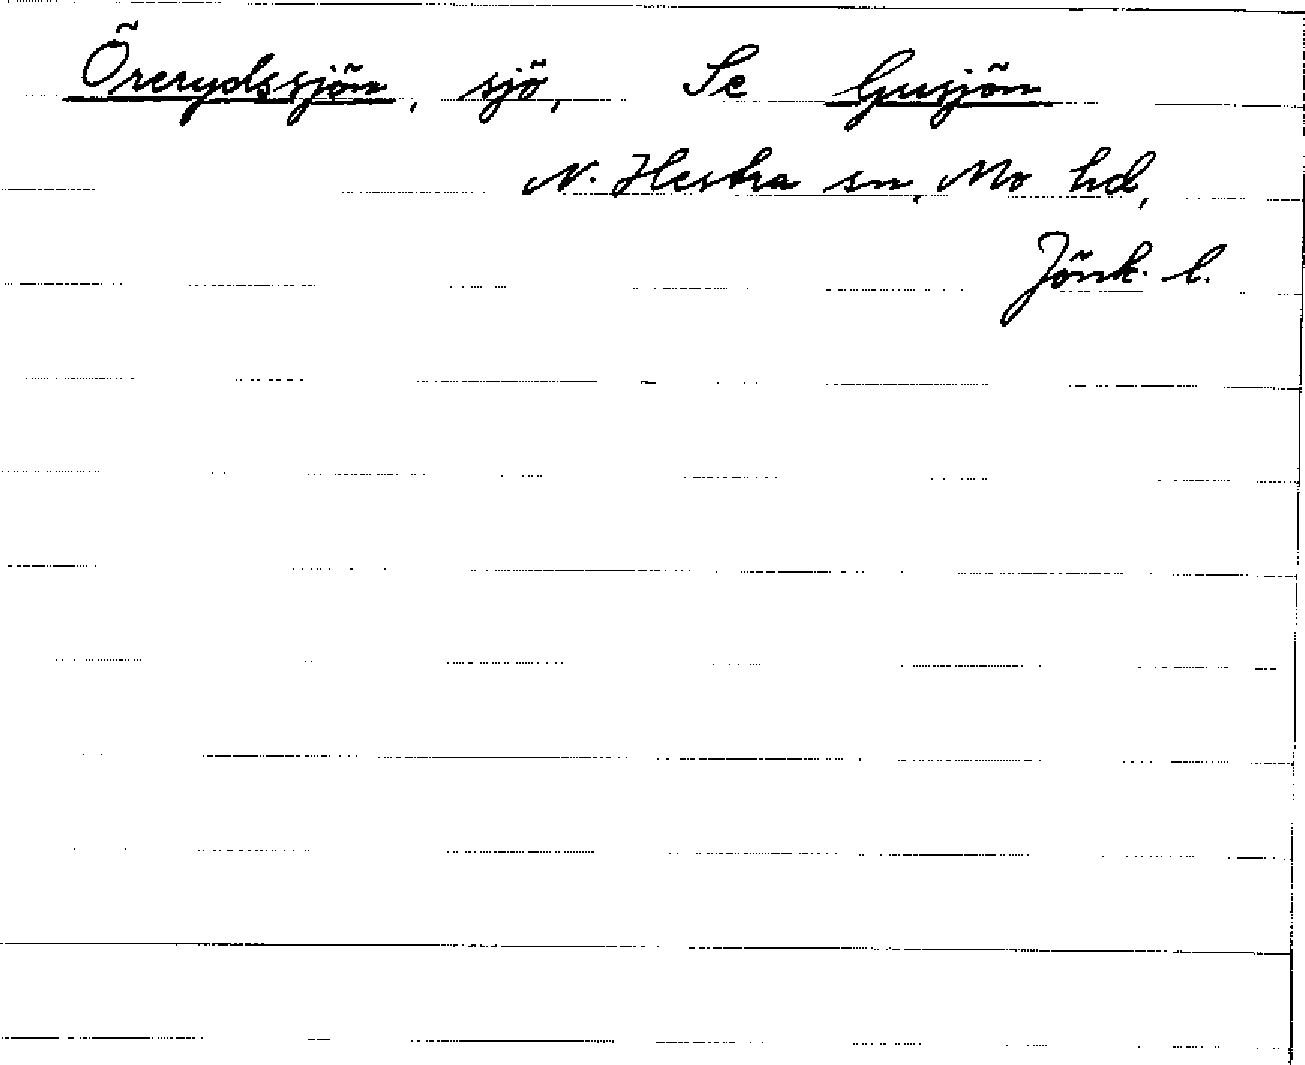 Örerydssjön, sjö, Se Gusjön
N. Hestra sn, Mo hd,
Jönk. l.